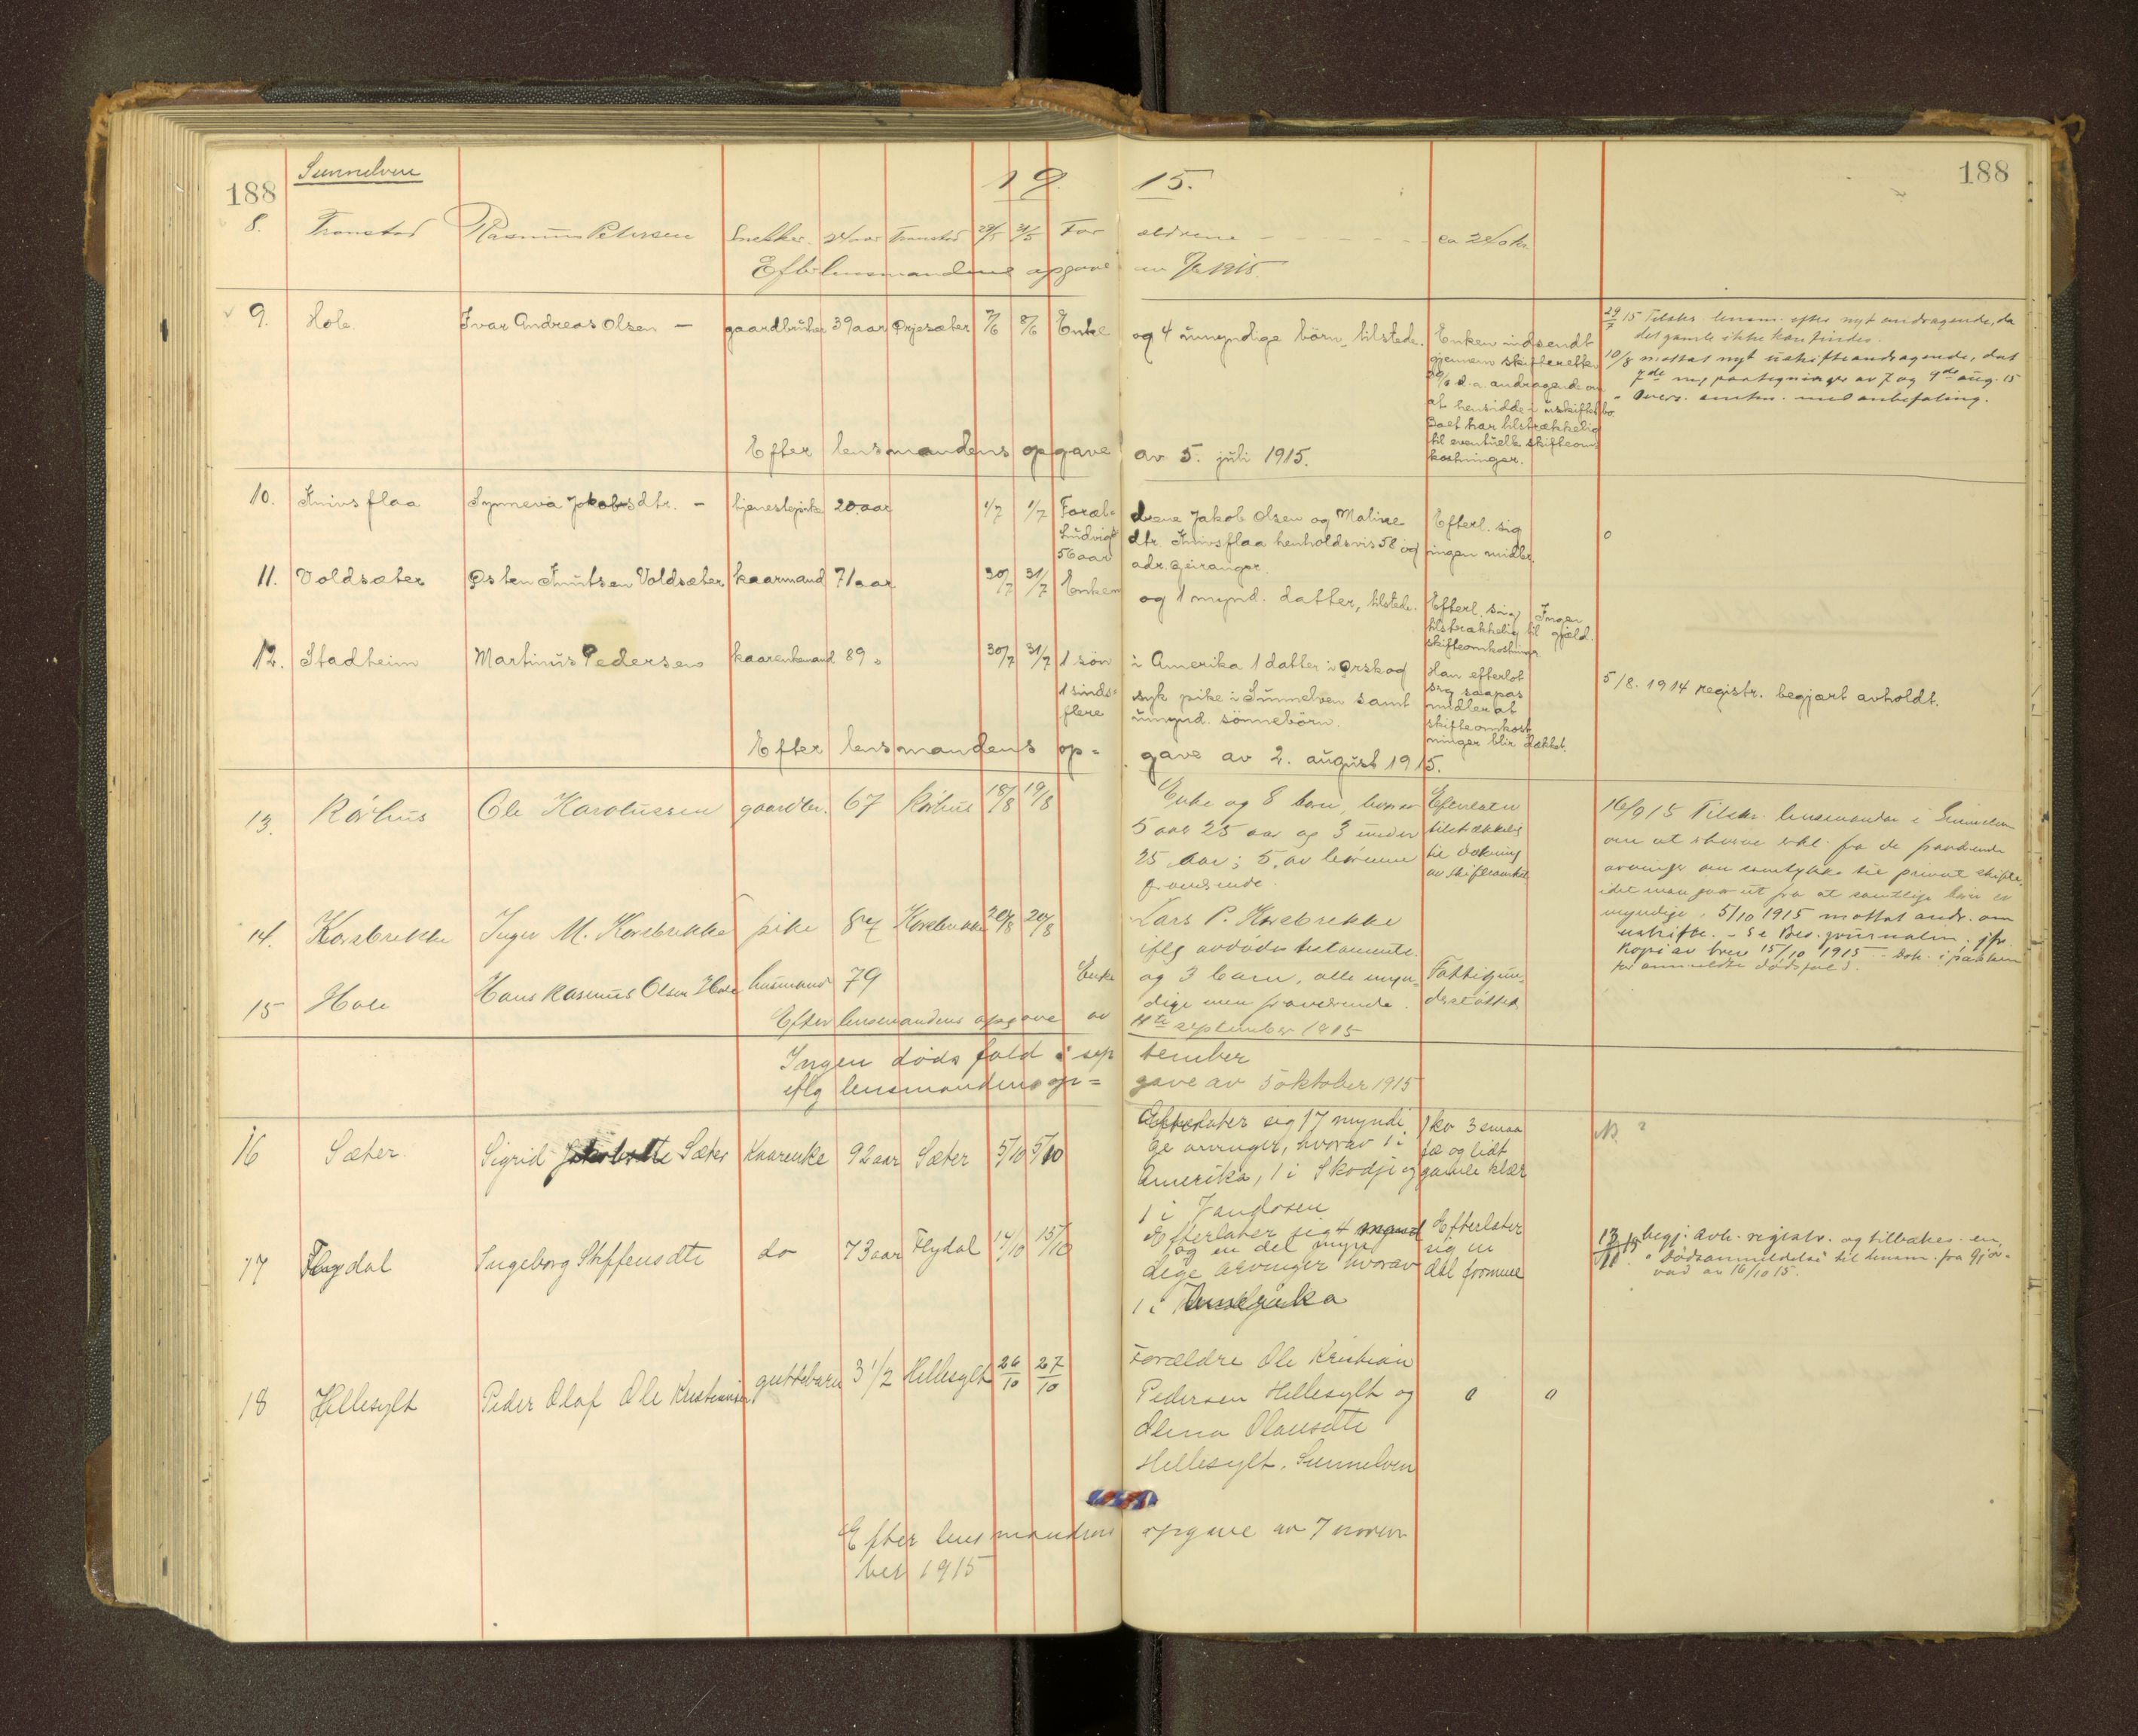 188 Sunnelven 19 15. 188
8. Tronstad Rasmus Petersen Snekker. 24 aar Tronstad 29/5 31/5 For ældrene ca 240 kr.
Efter lensmandens opgave av 7/6 1915.
9. Hole Ivar Andreas Olsen - gaardbruker 39 aar Ørjesæter 7/6 8/6 Enke og 4 umyndige børn, tilstede. Enken indsendt
gjennem skifteretten
d.a. andragende om
at hensidde i uskiftet bo.
Boet har tilstrækkelig
til eventuelle skifteom-
kostninger.
29/7 15 Tilskr. lensm. efter nyt andragende, da
det gamle ikke kan findes.
10/8 mottat nyt uskifteandragende, dat
7de m/ paategninger av 7 og 9de aug. 15
" Overs. amtm. med anbefaling.
Efter lensmandens opgave av 5. juli 1915.
10. Knivsflaa Synneva Jakobsdtr. - tjenestepike 20 aar 1/7 1/7 Foræl- drene Jakob Olsen og Maline Efterl. sig
Ludvigs dtr. Knivsflaa henholdsvis 58 og ingen midler. 0
56 aar adr. Geiranger.
11. Voldsæter Østen Knutsen Voldsæter kaarmand 71 aar 30/7 31/7 Enken og 1 mynd. datter, tilstede. Efterl. sig Ingen
tilstrækkelig til gjæld.
skifteomkostninger
12. Stadheim Martinus Pedersen kaarenkemand 89 " 30/7 31/7 1 søn i Amerika 1 datter i Ørskog Han efterlot
1 sinds- syk pike i Sunnelven samt sig saapas midler at
flere umynd. sønnebørn. skifteomkost
ninger blir dækket.
5/8. 1914 registr. begjært avholdt.
Efter lensmandens op- gave av 2. august 1915.
13. Rörhus Ole Karolussen gaardbr. 67 Rörhus 18/8 19/8 Enke og 8 barn, hvorav Efterlater
5 over 25 aar og 3 under tilstrækkelig
25 aar; 5 av börnene til dækning
fraværende. av skifteomkost
16/9 15 Tilskr. lensmanden i Sunnelven
om at skaane erkl. fra de fraværende
arvinger om samtykke til privat skifte,
idet man gaar ut fra at samtlige børn er
myndige. 5/10 1915 mottat andr. om
uskifte. - Se Bes. journalen, jfr.
kopi av brev 15/10 1915 - Dok. i pakken
for anmeldte dødsfald.
14. Korsbrekke Inger M. Korsbrekke pike 87 Korsbrekke 20/8 20/8 Lars P. Korsbrekke
iflg avdødes testamente.
15 Hole Hans Rasmus Olsen Hole husmand 79 Enke og 3 barn, alle myn- Fattigun-
dige men fraværende. derstöttet
Efter lensmandens opgave av 11te september 1915
Ingen dødsfald i sep tember
iflg lensmandens op= gave av 5 oktober 1915
16 Sæter Sigrid Sæter Kaarenke 92 aar Sæter 5/10 5/10 Efterlater sig 17 myndi 1 ko 3 smaa
ge arvinger, hvorav 1 i fæ og lidt
Amerika, 1 i Skodje og gamle klær
1 i Vandøsen
NB ?
17 Flydal Ingeborg Steffensdtr do 73 aar Flydal 14/10 15/10 Efterlater sig 4 Efterlater
og en del myn sig en
dige arvinger hvorav del formue
1 i Amerika
13/11 15 begj. avh. registr. og tilbakes. en
"dødsanmeldelse" til lensm. fra Gjør-
vad av 16/10 15.
18 Hellesylt Peder Olaf Ole Kristiansen guttebarn 3 1/2 Hellesylt 26/10 27/10 Forældre Ole Kristian
Pedersen Hellesylt og 0 0
Olena Olausdtr
Hellesylt, Sunnelven
Efter lensmandens opgave av 7 novem
ber 1915